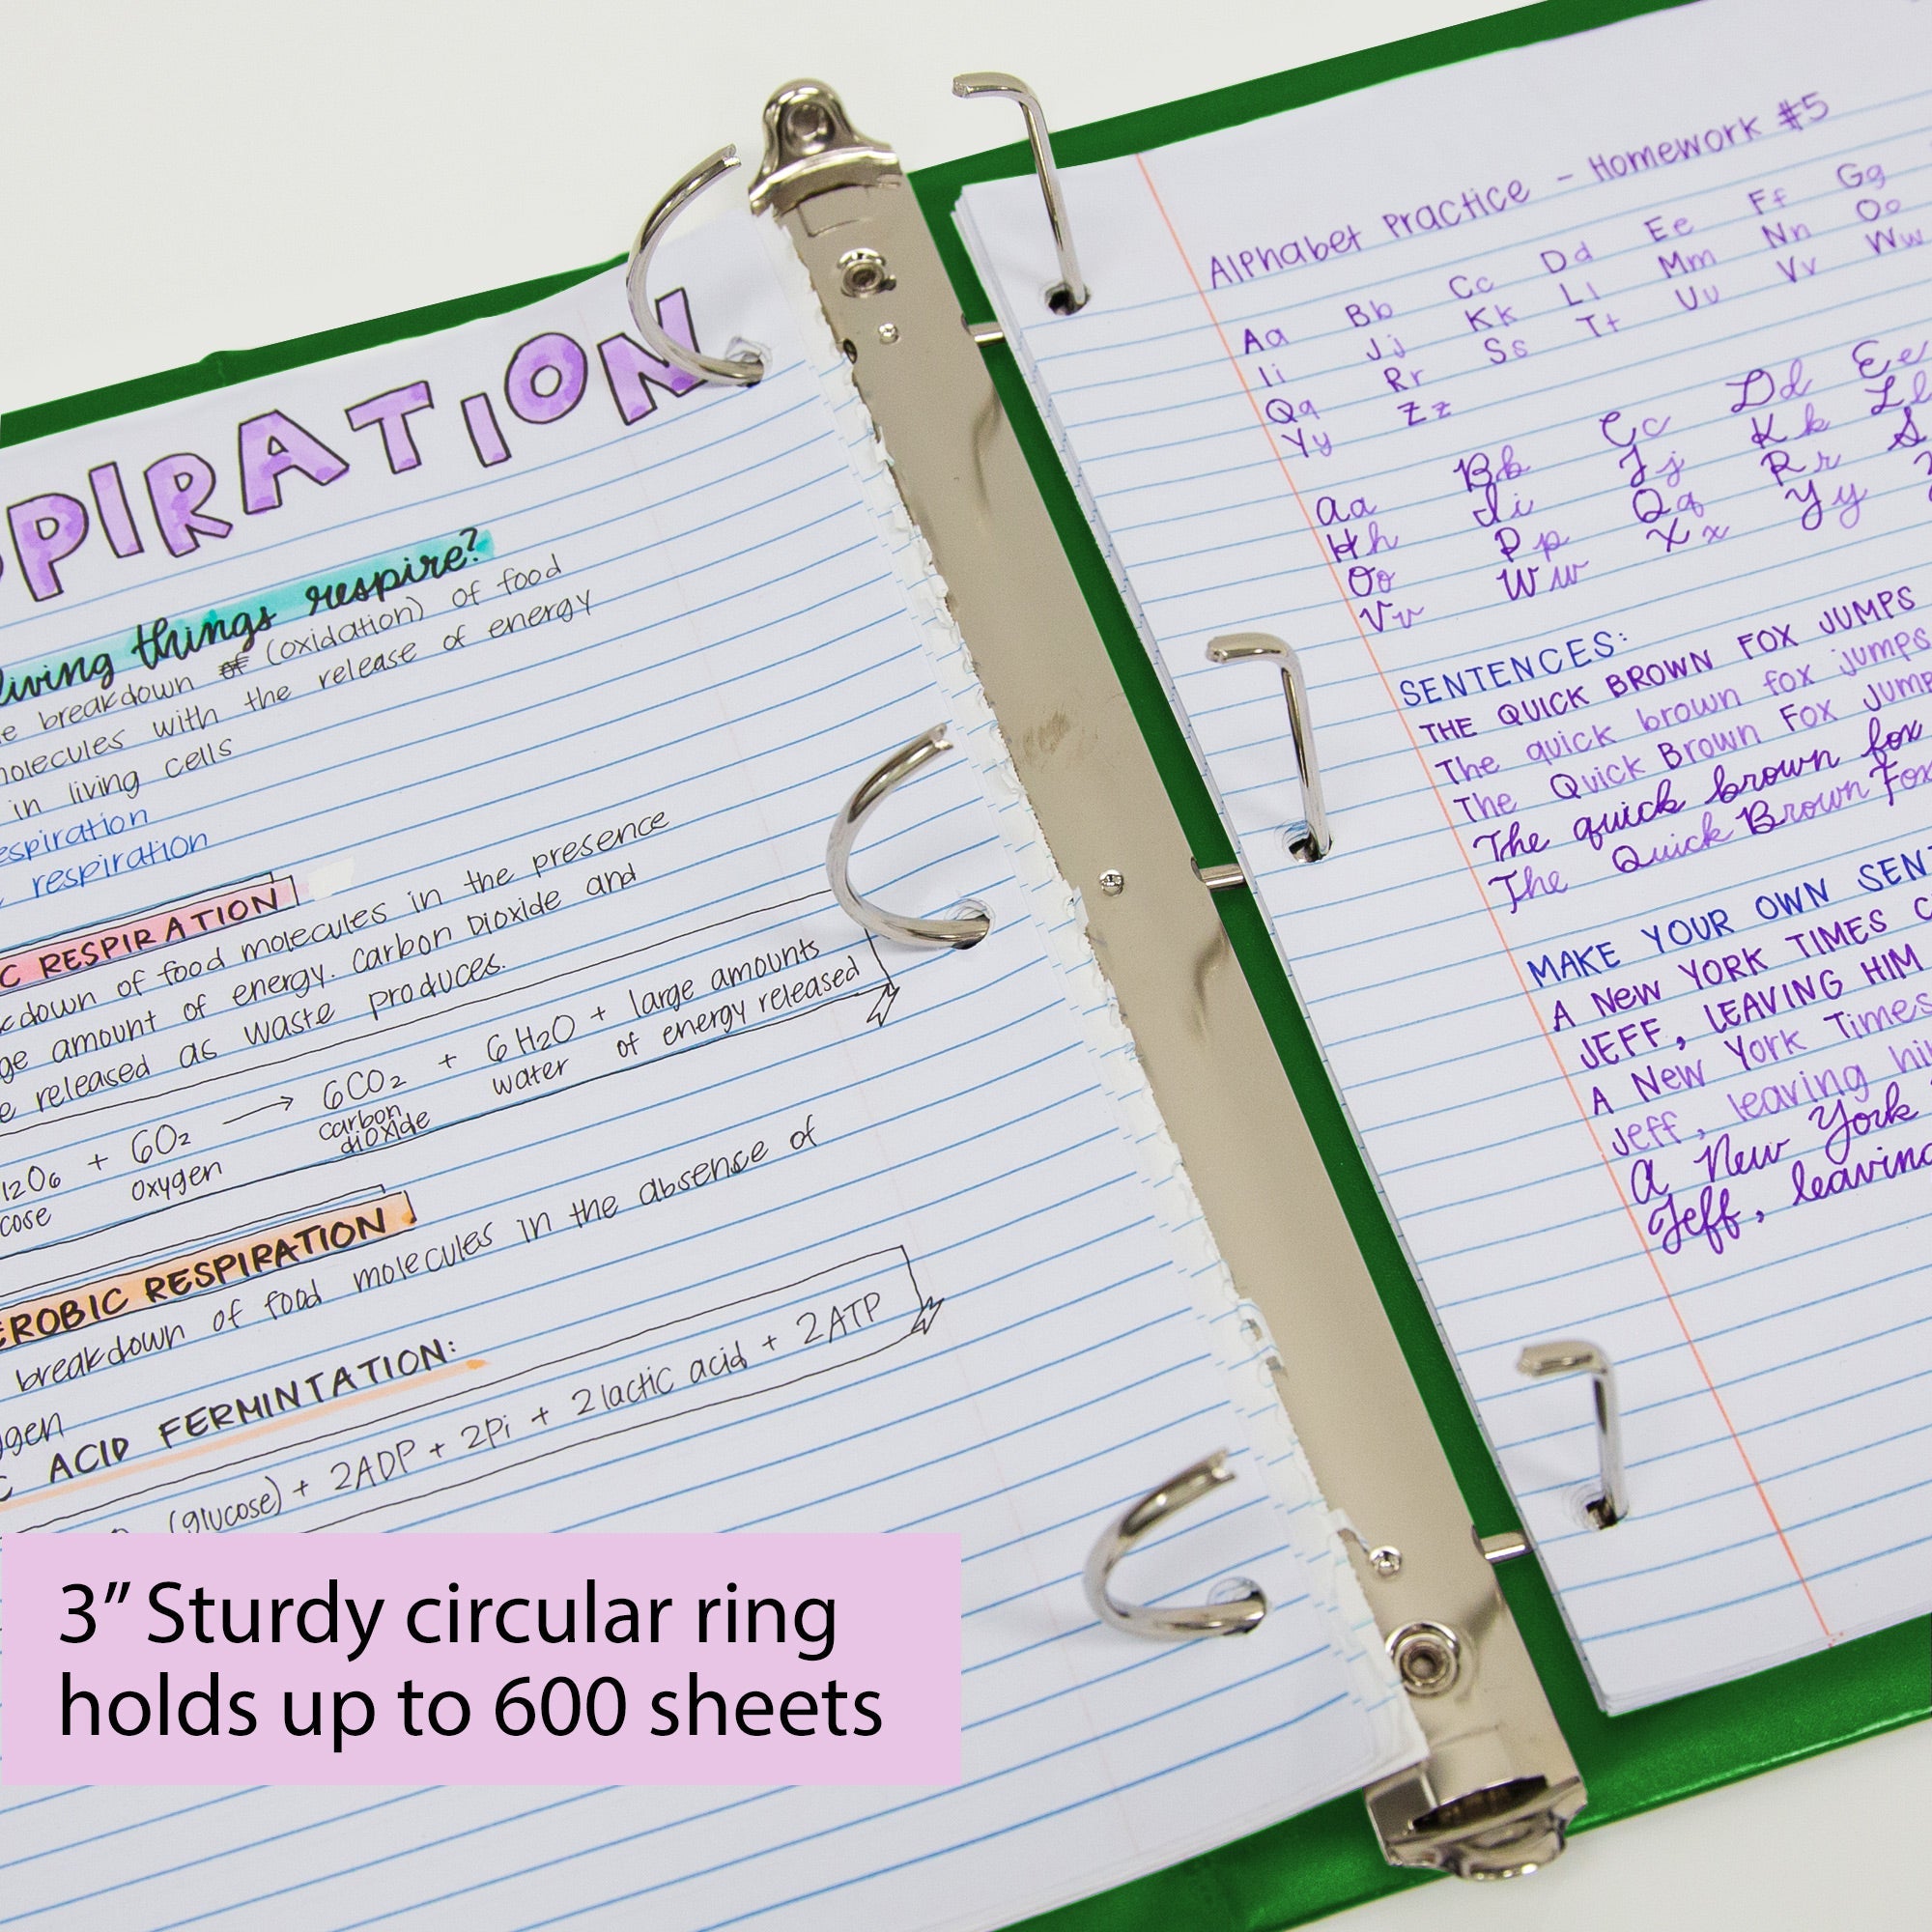 PIRATION
living things respire?
e breakdown of (oxidation) of food
molecules with the release of energy
in living cells
espiration
respiration
C RESPIRATION
kdown of food molecules in the presence
ge amount of energy. Carbon Dioxide and
e released as waste produces.
12O6 + 6O2 → 6CO2 + 6H2O + large amounts
cose oxygen carbon dioxide water of energy released
EROBIC RESPIRATION
breakdown of food molecules in the absence of
ygen
C ACID FERMINTATION:
(glucose) + 2ADP + 2Pi + 2 lactic acid + 2ATP
Alphabet Practice - Homework #5
Aa Bb Cc Dd Ee Ff Gg
Ii Jj Kk Ll Mm Nn Oo
Qq Rr Ss Tt Uu Vv Ww
Yy Zz
Aa Bb Cc Dd Ee
Hh Ii Jj Kk Ll
Oo Pp Qq Rr S
Vv Ww Xx Yy
SENTENCES:
THE QUICK BROWN FOX JUMPS
The quick brown fox jumps
The Quick Brown Fox Jump
The quick brown fox
The Quick Brown Fox
MAKE YOUR OWN SENT
A NEW YORK TIMES C
JEFF, LEAVING HIM
A New York Times
Jeff, leaving hi
A New York
Jeff, leaving
3” Sturdy circular ring
holds up to 600 sheets